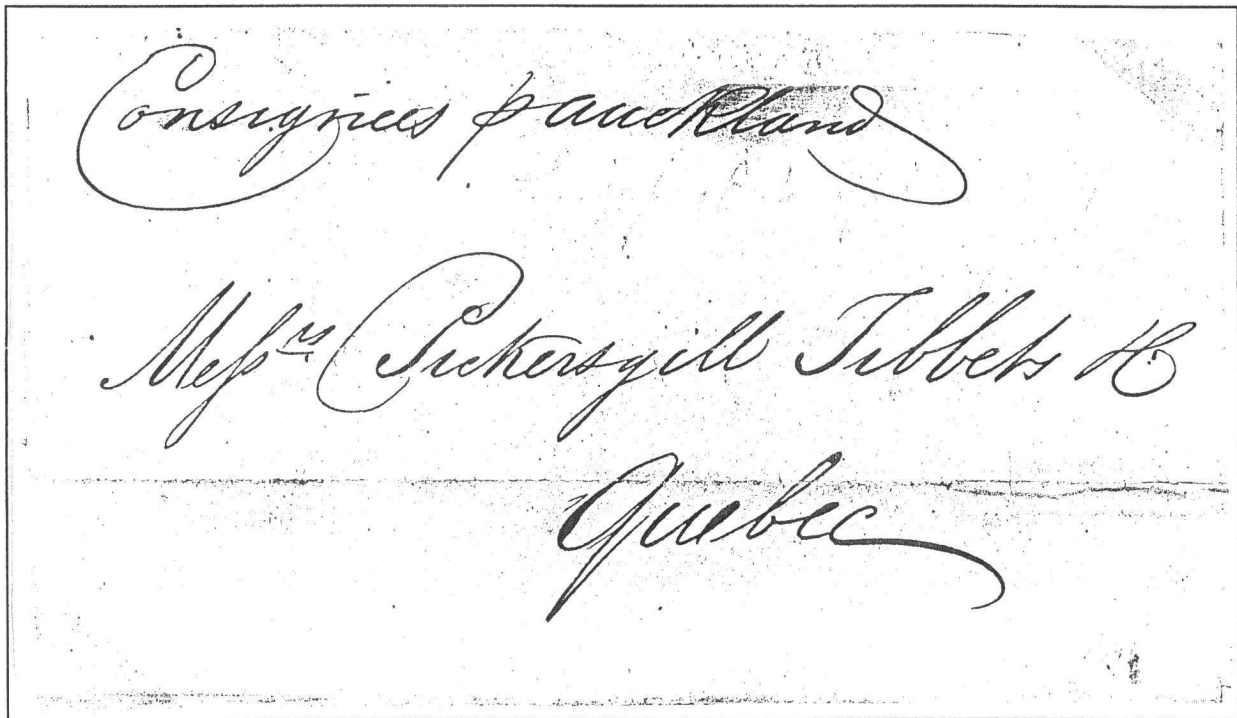 Consignees p Auckland
Messrs Pickersgill Tibbets &C
Quebec